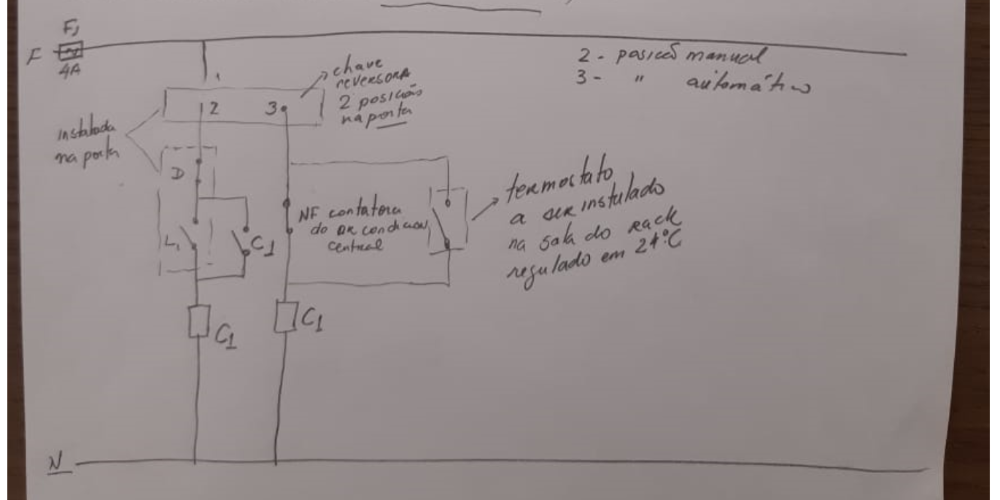 F1
F
4A
1
2 - posição manual
3 - " automático
chave
reversora
2 posição
na porta
2 3
instalada
na porta
D
L1
C1
NF contatora
do ar condicionado
central
termostato
a ser instalado
na sala do rack
regulado em 24°C
C1
C1
N